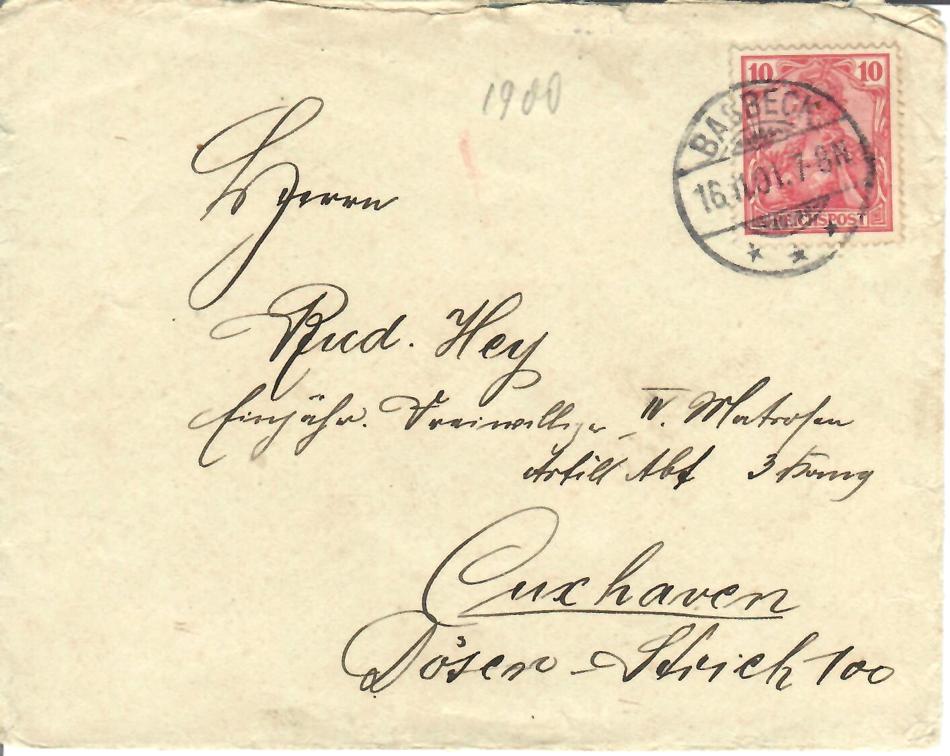 1900
10 10
BASBECK
16.11.01. 7-8N
REICHSPOST
Herrn
Rud. Hey
Einjähr. Freiwilliger IV. Matrosen
Artill Abt 3 Komp
Cuxhaven
Döser-Strich 100